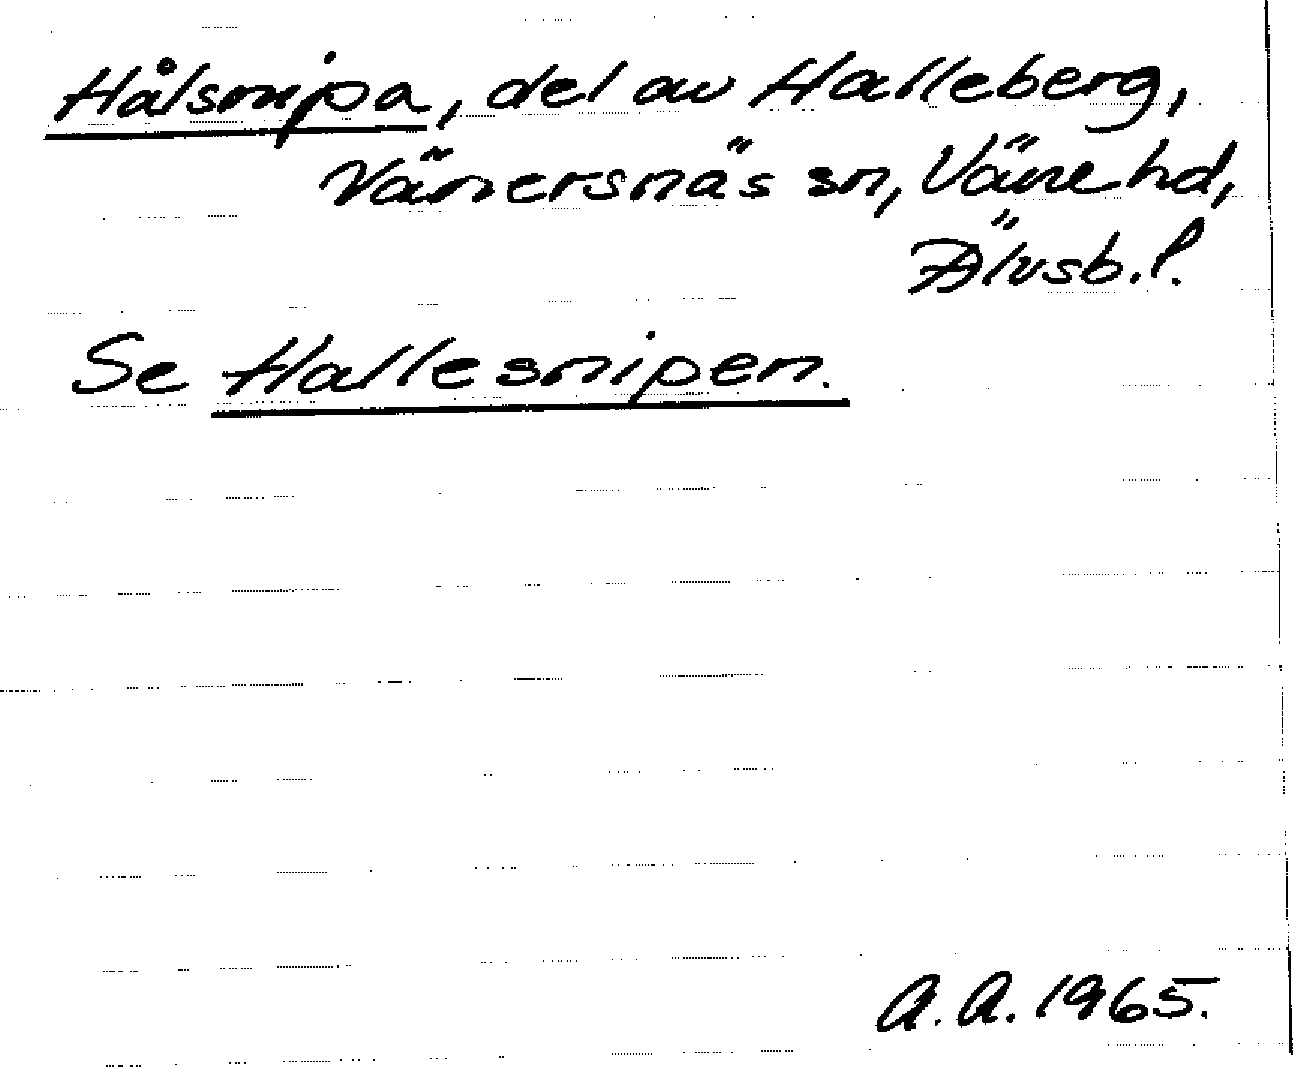 Hålsnipa, del av Halleberg,
Vänersnäs sn, Väne hd,
Älvsb. l.
Se Hallesnipen.
A.A. 1965.